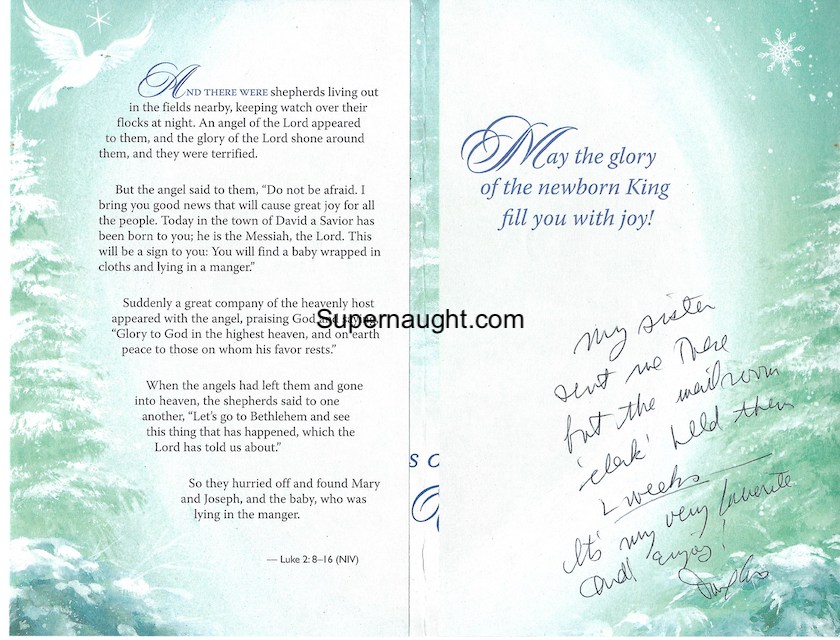 AND THERE WERE shepherds living out
in the fields nearby, keeping watch over their
flocks at night. An angel of the Lord appeared
to them, and the glory of the Lord shone around
them, and they were terrified.
But the angel said to them, “Do not be afraid. I
bring you good news that will cause great joy for all
the people. Today in the town of David a Savior has
been born to you; he is the Messiah, the Lord. This
will be a sign to you: You will find a baby wrapped in
cloths and lying in a manger.”
Suddenly a great company of the heavenly host
appeared with the angel, praising God and saying,
“Glory to God in the highest heaven, and on earth
peace to those on whom his favor rests.”
When the angels had left them and gone
into heaven, the shepherds said to one
another, “Let’s go to Bethlehem and see
this thing that has happened, which the
Lord has told us about.”
So they hurried off and found Mary
and Joseph, and the baby, who was
lying in the manger.
— Luke 2: 8–16 (NIV)
Supernaught.com
May the glory
of the newborn King
fill you with joy!
My sister
sent me These
but the mailroom
'clerk' held them
2 weeks
It's my very favorite
and enjoy!